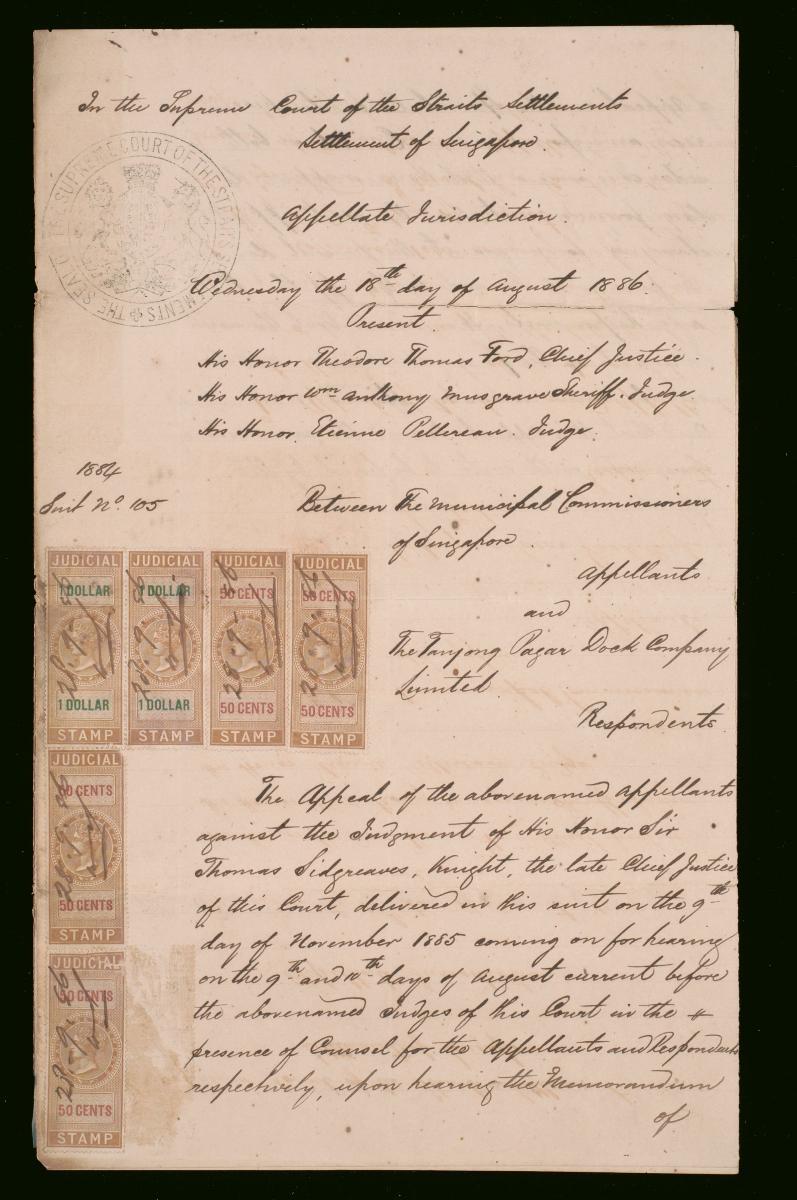 In the Supreme Court of the Straits Settlements
Settlement of Singapore.
THE SEAL OF THE SUPREME COURT OF THE STRAITS SETTLEMENTS
Appellate Jurisdiction.
Wednesday the 18th day of August 1886.
Present.
His Honor Theodore Thomas Ford, Chief Justice.
His Honor Wm Anthony Musgrave Sheriff. Judge
His Honor Etienne Pellereau. Judge.
1884
Suit No. 105
Between The Municipal Commissioners
of Singapore.
Appellants
and
The Tanjong Pagar Dock Company
Limited
Respondents.
JUDICIAL JUDICIAL JUDICIAL JUDICIAL
1 DOLLAR 1 DOLLAR 50 CENTS 50 CENTS
28-9-86 28-9-86 28-9-86 28-9-86
1 DOLLAR 1 DOLLAR 50 CENTS 50 CENTS
STAMP STAMP STAMP STAMP
JUDICIAL
50 CENTS
28-9-86
50 CENTS
STAMP
JUDICIAL
50 CENTS
28-9-86
50 CENTS
STAMP
The Appeal of the abovenamed appellants
against the Judgment of His Honor Sir
Thomas Sidgreaves, Knight, the late Chief Justice
of this Court, delivered in this suit on the 9th
day of November 1885 coming on for hearing
on the 9th and 10th days of August current before
the abovenamed Judges of this Court in the
presence of Counsel for the Appellants and Respondents
respectively, upon hearing the Memorandum
of